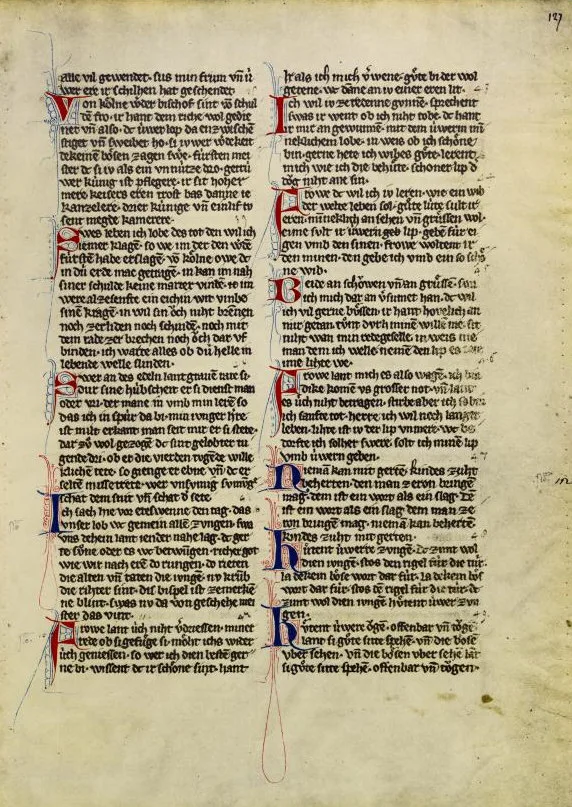 127
alle vil gewendet· sus min frum vñ ú
wer ere ir schilhen hat geschendet
Von kölne werder bischof sint ir schul
den fro· ir hant dem riche wol gedie
net vñ also· dc úwer lop da enzwischẽ
stiget vñ sweibet ho· si iv wer
dekeinen bösen zagen swere· fúrsten mei
ster dc si iv als ein vnnútze dro· getrú
wer kúnig is pflegere· ir sit hoher
mere keisers eren trost bas danne ie
kanzelere· drier kúnige vñ einlif tv
sent megde kamerere·
Swes leben ich lobe des tot den wil ich
iemer klagen· so we im der den w̾dẽ
fúrstẽ habe erslagẽ võ kölne owe dc
in dú erde mac getragẽ· in kan im nah
siner schulde keine marter vinde· im
were alzesenfte ein eichin wit vmbe
sinẽ kragẽ· in wil sin och niht brẽnen
noch zerliden noch schindẽ· noch mit
dem rade zer brechen noch och dar vf
binden· ich warte alles ob dú helle in
lebende welle slinden·
Swer an des edeln lantgrauen rate si·
dur sine húbscheit er si dienst man
oder vri· der mane in vmb min lerẽ so
das ich in spúr da bi· min iunger h̾re
ist milt erkant man seit mir er si stete·
dar zů wol gezogẽ dc sint gelobter tu
gende dri· ob er die vierden tvgẽde wille
klichen tete· so gienge er ebne vñ dc er
selten missetrete· wer vnsvmig svmúg̃
schat dem snit vñ schat d̾ sete
Ich sach hie vor etteswenne den tag· das
vnser lob wc gemein allẽ zvngen· swa
vns dehein lant iender nahe lag· dc ger
te sůne oder es wc betwúngen· richer got
wie wir nach erẽ do rungen· do rieten
die alten vñ taten die ivngẽ· nv krúb
die rihter sint· dis bispel ist zemerkẽ
ne blint· swas nv da von geschehe mei
ster das vint·
Frowe lant úch niht v̾driessen· miner
rede ob si gefúge si· möht ichs wider
úch geniessen· so wer ich dien bestẽ ger
ne bi· wissent dc ir schöne sint· hant
ir als ich mich v̾wene· gůte bi der wol
getene· we dãne an iv einer eren lit·
Ich wil iv zeredenne gvnnẽ· sprechent
swas ir went ob ich niht tobe· dc hant
ir mit an gewunnẽ· mit dem úwerm mĩ
neklichem lobe· in weis ob ich schöne
bin· gerne hete ich wibes gůte· lerent
mich wie ich die behůte· schoner lip d̾
tög niht ane sin·
Frowe dc wil ich iv leren· wie ein wib
der welte leben sol· gůte lúte sult ir
eren· mĩneklich an sehen vñ grůssen wol·
eime sult ir úwern geb lip· gebẽ fúr ei
gen vmd den sinen· frowe woltent ir
den minen· den gebe ich vmb ein so schö
ne wib·
Beide an schowen vñ an grůssen· swc
ich mich dar an v̾sumet han· dc wil
ich vil gerne bůssen· ir hant hovelich an
mir getan· tůnt dvrh minẽ wille me· sit
niht wan min redegeselle· in weis nie
man dem ich welle· nemẽ den lip es
ime lihte we·
Frowe lant mich es also wagẽ· ich bin
dike komẽ vs grosser not· vñ lant
es úch niht betragen· stirbe aber ich so bin
ich sanfte tot· herre ich wil noch langer
leben· lihte ist iv der lip vnmere· wc be
dorfte ich solher swere· solt ich minẽ lip
vmb úwern geben·
Nieman kan mit gerten· kindes zuht
beherten· den man zeren bringẽ
mag· dem ist ein wort als ein slag· dẽ
ist ein wort als ein slag· dem man ze
ren bringẽ mag· niemã kan behertẽ
kindes zuht mit gerten·
Hútent úwerre zvngẽ· dc zimt wol
dien ivngẽ· stos den rigel fúr die túr·
la dekein böse wort dar fúr· la dekein bös
wort dar fúr· stos dẽ rigel fúr die túr· dc
zimt wol dien ivngẽ hútent úwerr zvn
gen·
Hútent úwerre ögẽ· offenbar vñ tögẽ
lant si gůte sitte spehẽ· vñ die böse
vber sehen· vñ die bösen vber sehe lat
si gůte sitte spehẽ· offenbar vñ tögen·